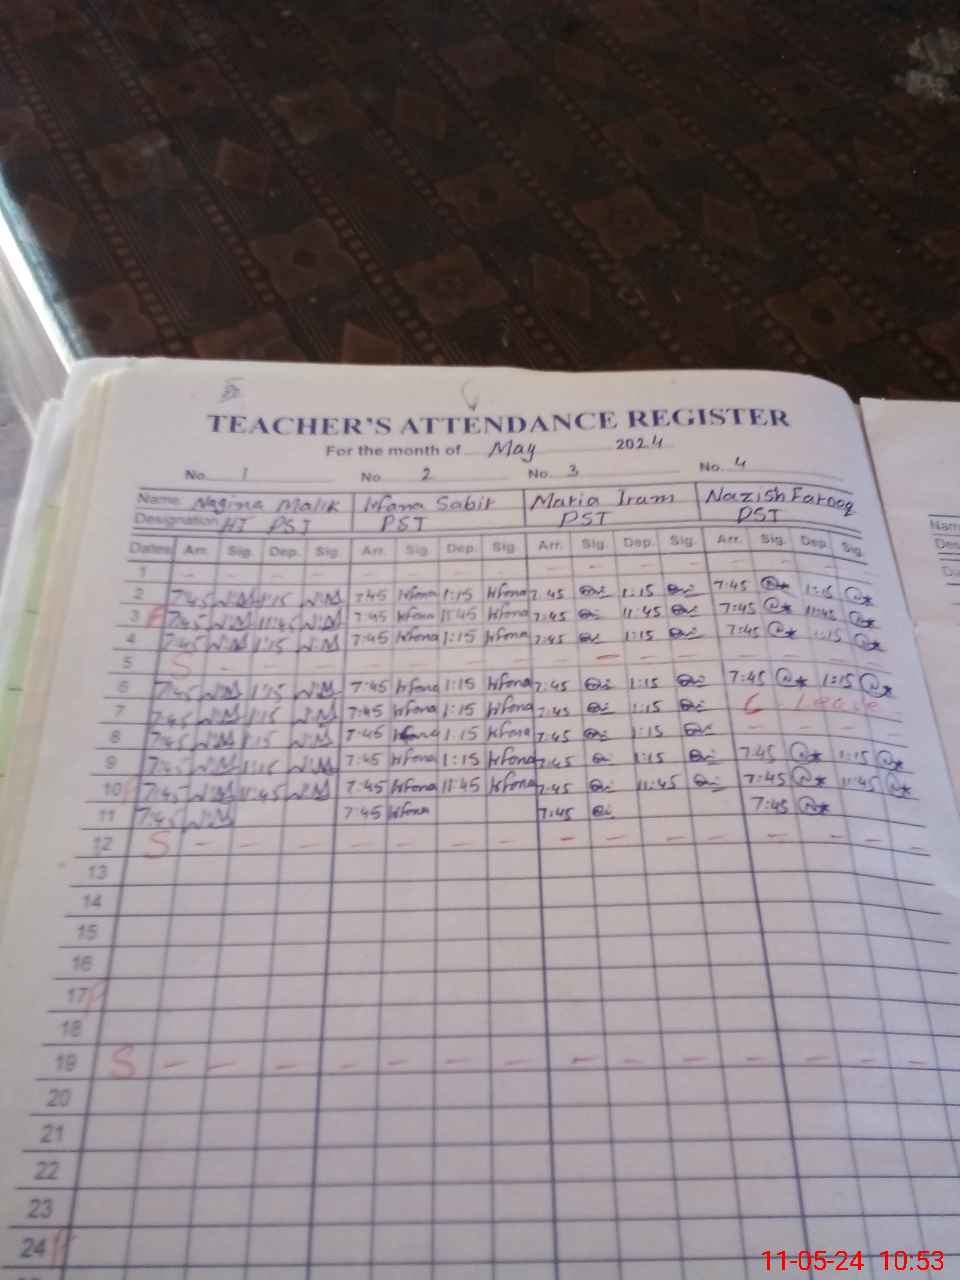 TEACHER'S ATTENDANCE REGISTER
For the month of May 2024
No. 1 No. 2 No. 3 No. 4
Name Nagina Malik Irfana Sabir Maria Iram Nazish Farooq
Designation HT PST PST PST PST
Dates Arr. Sig. Dep. Sig. Arr. Sig. Dep. Sig. Arr. Sig. Dep. Sig. Arr. Sig. Dep. Sig.
1 - - - - - - - - - - - - - - - -
2 7:45 1:15 7:45 Irfana 1:15 Irfana 7:45 1:15 7:45 1:15
3 F 7:45 11:45 7:45 Irfana 11:45 Irfana 7:45 11:45 7:45 11:45
4 7:45 1:15 7:45 Irfana 1:15 Irfana 7:45 1:15 7:45 1:15
5 S - - - - - - - - - - - - - - -
6 7:45 1:15 7:45 Irfana 1:15 Irfana 7:45 1:15 7:45 1:15
7 7:45 1:15 7:45 Irfana 1:15 Irfana 7:45 1:15 Leave
8 7:45 1:15 7:45 Irfana 1:15 Irfana 7:45 1:15 - - - -
9 7:45 1:15 7:45 Irfana 1:15 Irfana 7:45 1:15 7:45 1:15
10 F 7:45 11:45 7:45 Irfana 11:45 Irfana 7:45 11:45 7:45 11:45
11 7:45 7:45 Irfana 7:45 7:45
12 S - - - - - - - - - - - - - - -
13
14
15
16
17 F
18
19 S - - - - - - - - - - - - - - -
20
21
22
23
24 F
Nam
Des
11-05-24 10:53